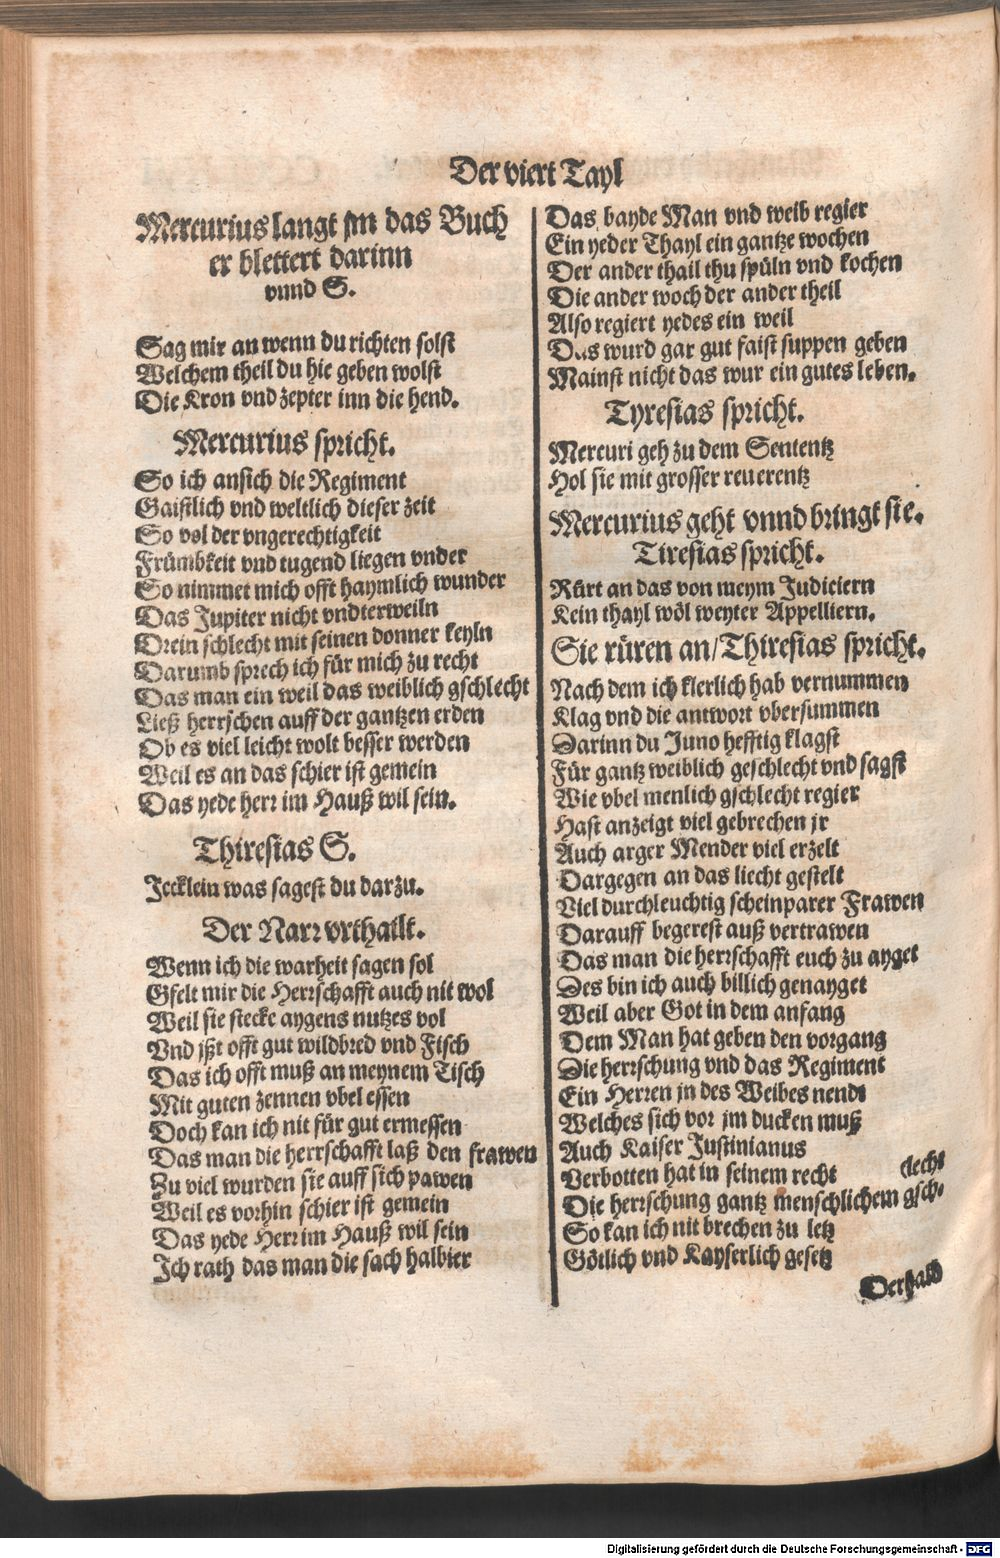 Der viert Tayl
Mercurius langt jm das Buch
er blettert darinn
vnnd S.
Sag mir an wenn du richten solst
Welchem theil du hie geben wolst
Die Kron vnd zepter inn die hend.
Mercurius spricht.
So ich ansich die Regiment
Gaistlich vnd weltlich dieser zeit
So vol der vngerechtigkeit
Frümbkeit vnd tugend liegen vnder
So nimmet mich offt haymlich wunder
Das Jupiter nicht vndterweiln
Drein schlecht mit seinen donner keyln
Darumb sprech ich für mich zu recht
Das man ein weil das weiblich gschlecht
Ließ herrschen auff der gantzen erden
Ob es viel leicht wolt besser werden
Weil es an das schier ist gemein
Das yede herr im Hauß wil sein.
Thiresias S.
Jecklein was sagest du darzu.
Der Narr vrthailt.
Wenn ich die warheit sagen sol
Gfelt mir die Herrschafft auch nit wol
Weil sie stecke aygens nutzes vol
Vnd jßt offt gut wildbred vnd Fisch
Das ich offt muß an meynem Tisch
Mit guten zennen vbel essen
Doch kan ich nit für gut ermessen
Das man die herrschafft laß den frawen
Zu viel wurden sie auff sich pawen
Weil es vorhin schier ist gemein
Das yede Herr im Hauß wil sein
Ich rath das man die sach halbier
Das bayde Man vnd weib regier
Ein yeder Thayl ein gantze wochen
Der ander thail thu spüln vnd kochen
Die ander woch der ander theil
Also regiert yedes ein weil
Das wurd gar gut faist suppen geben
Mainst nicht das wur ein gutes leben.
Tyresias spricht.
Mercuri geh zu dem Sententz
Hol sie mit grosser reuerentz
Mercurius geht vnnd bringt sie.
Tiresias spricht.
Rürt an das von meym Judiciern
Kein thayl wöl weyter Appelliern.
Sie rüren an/Thiresias spricht.
Nach dem ich klerlich hab vernummen
Klag vnd die antwort vbersummen
Darinn du Juno hefftig klagst
Für gantz weiblich geschlecht vnd sagst
Wie vbel menlich gschlecht regier
Hast anzeigt viel gebrechen jr
Auch arger Mender viel erzelt
Dargegen an das liecht gestelt
Viel durchleuchtig scheinparer Frawen
Darauff begerest auß vertrawen
Das man die herrschafft euch zu ayget
Des bin ich auch billich genayget
Weil aber Got in dem anfang
Dem Man hat geben den vorgang
Die herrschung vnd das Regiment
Ein Herren in des Weibes nendt
Welches sich vor jm ducken muß
Auch Kaiser Justinianus
Verbotten hat in seinem recht
Die herrschung gantz menschlichem gsch-
clecht
So kan ich nit brechen zu letz
Götlich vnd Kayserlich gesetz
Derhalb
Digitalisierung gefördert durch die Deutsche Forschungsgemeinschaft - DFG